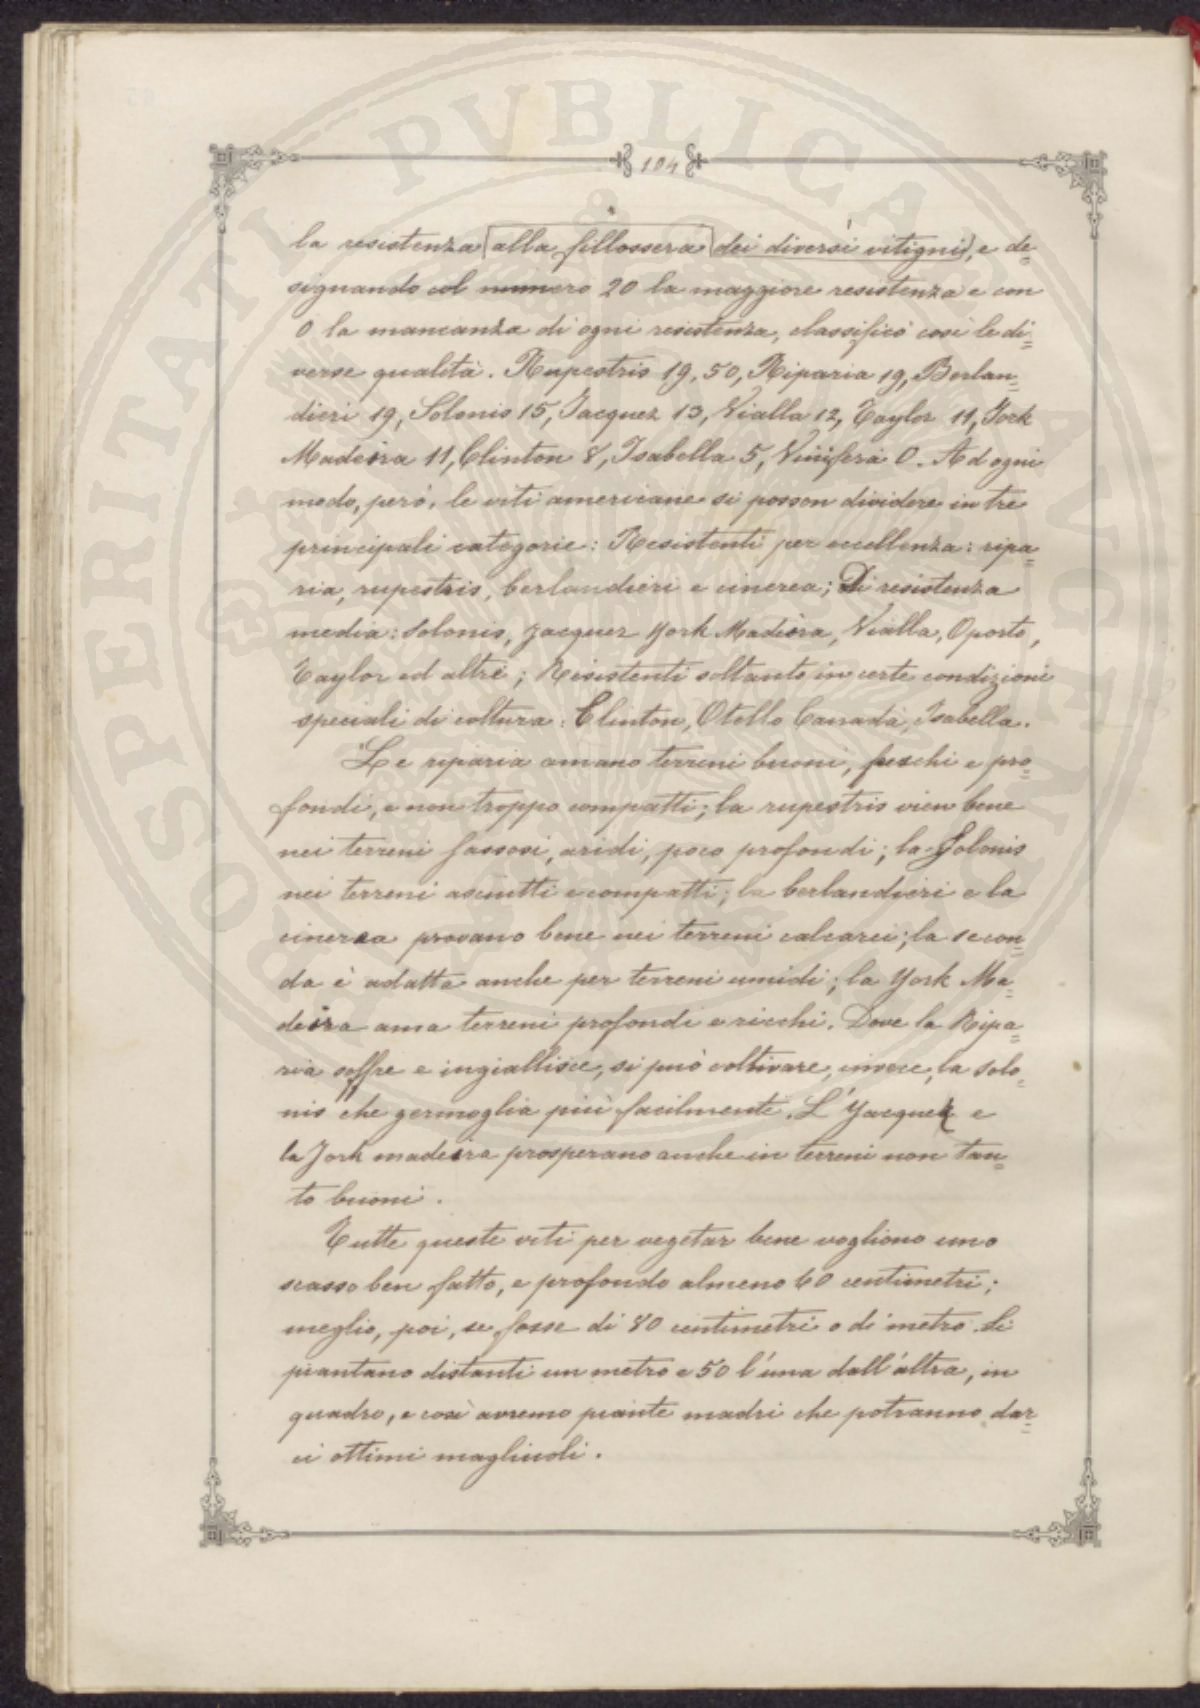 PUBLICAE
PROSPERITATI
AUGENDAE
104
la resistenza alla fillossera dei diversi vitigni, e de=
signando col numero 20 la maggiore resistenza e con
0 la mancanza di ogni resistenza, classificò così le di=
verse qualità. Rupestris 19,50, Riparia 19, Berlan=
dieri 19, Solonis 15, Jacquez 13, Vialla 12, Taylor 11, York
Madeira 11, Clinton 8, Isabella 5, Vinifera 0. Ad ogni
modo, però, le viti americane si posson dividere in tre
principali categorie: Resistenti per eccellenza: ripa=
ria, rupestris, berlandieri e cinerea; Di resistenza
media: Solonis, Jacquez York Madeira, Vialla, Oporto,
Taylor ed altri; Resistenti soltanto in certe condizioni
speciali di coltura: Clinton, Otello Canada, Isabella.
Le riparia amano terreni buoni, freschi e pro=
fondi, e non troppo compatti; la rupestris vien bene
nei terreni sassosi, aridi, poco profondi; la Solonis
nei terreni asciutti e compatti; la berlandieri e la
cinerea provano bene nei terreni calcarei; la secon=
da è adatta anche per terreni umidi; la York Ma=
deira ama terreni profondi e ricchi. Dove la Ripa=
ria soffre e ingiallisce, si può coltivare, invece, la solo=
nis che germoglia più facilmente. L'Yacquez e
la York madeira prosperano anche in terreni non tan=
to buoni.
Tutte queste viti per vegetar bene vogliono uno
scasso ben fatto, e profondo almeno 60 centimetri;
meglio, poi, se fosse di 80 centimetri o di metro. Si
piantano distanti un metro e 50 l'una dall'altra, in
quadro, e così avremo piante madri che potranno dar=
ci ottimi magliuoli.